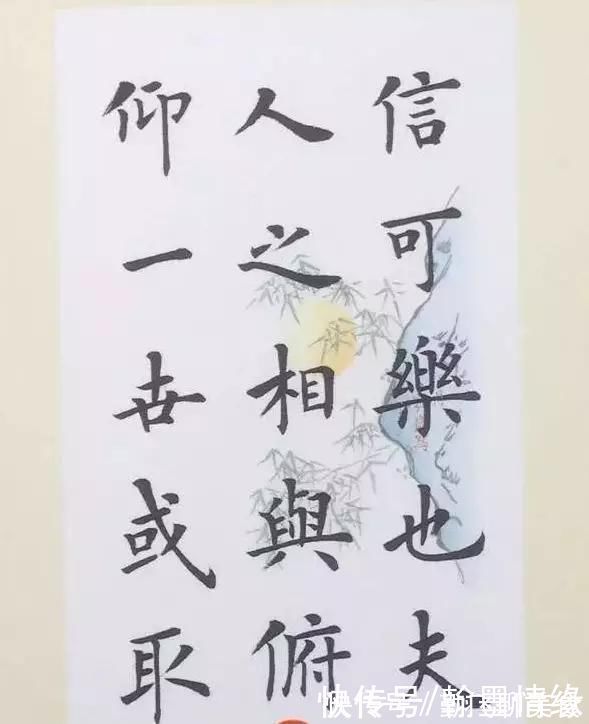 信可樂也夫
人之相與俯
仰一世或取
快传号/翰墨情缘